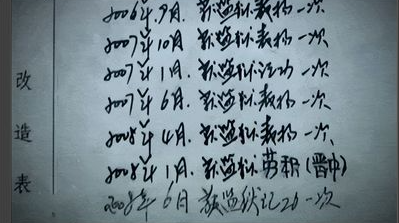 2006年.9月. 获监狱表扬一次
2007年10月 获监狱表扬一次
2007年1月. 获监狱记功一次
2007年6月. 获监狱表扬一次
2008年4月. 获监狱表扬一次.
2008年1月. 获监狱劳积(晋中)
2008年6月 获监狱记功一次
改造表